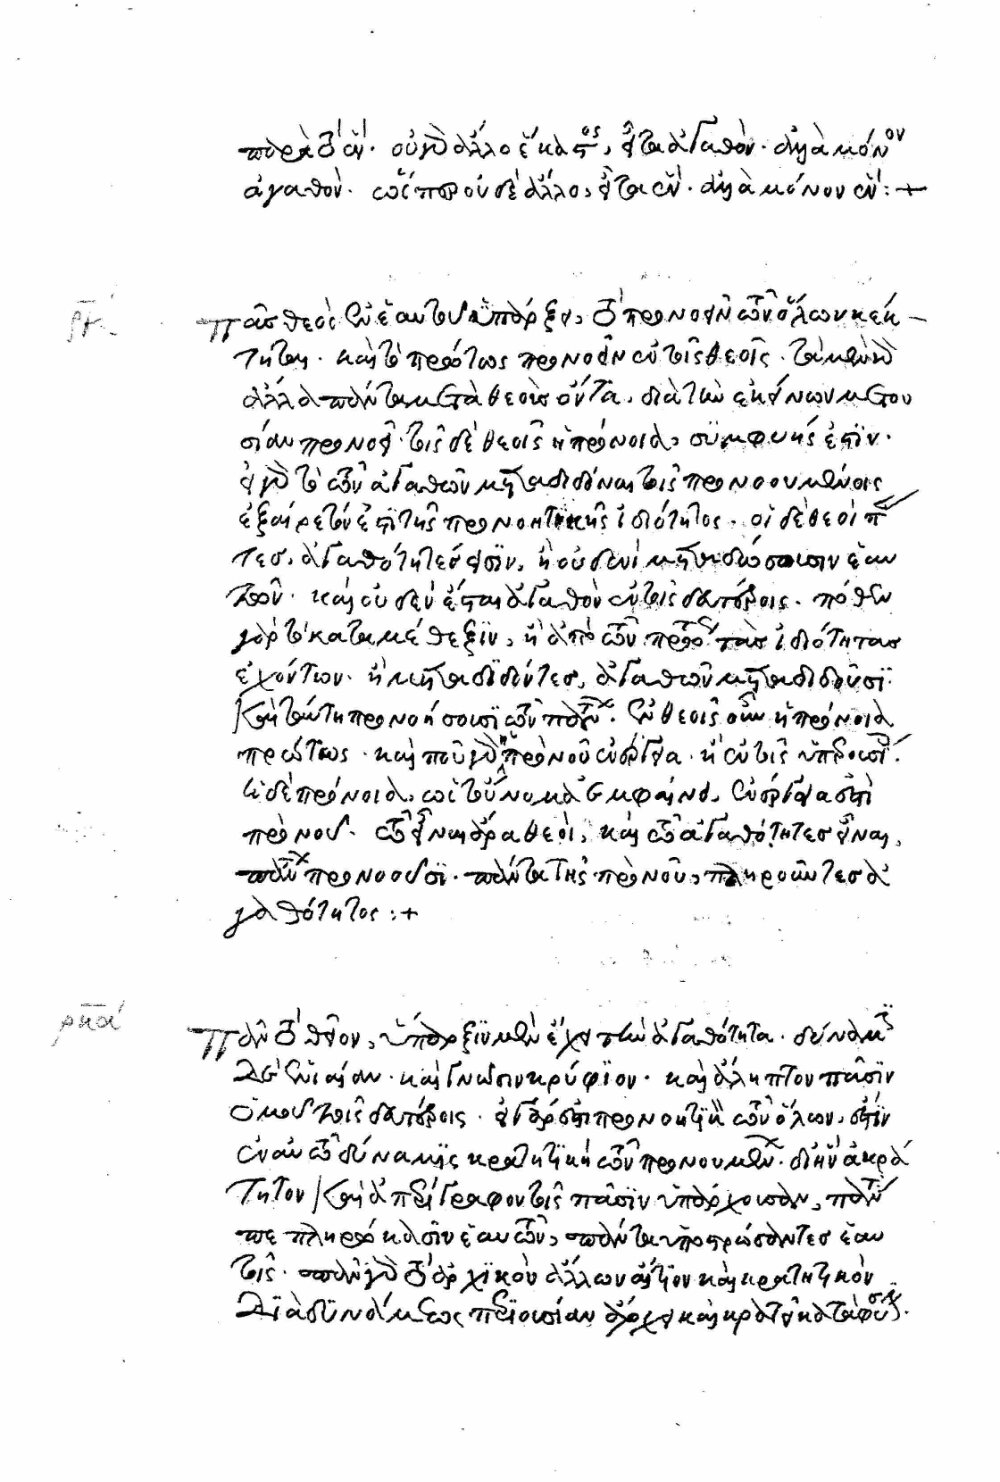 παρὰ τὸ ἕν· οὐ γὰρ ἄλλο ἕκαστος, εἶτα ἀγαθὸν· ἀλλὰ μόνον
ἀγαθὸν· ὥσπερ οὐδὲ ἄλλο, εἶτα ἕν· ἀλλὰ μόνον ἕν :+
ρκ΄ Πᾶς θεὸς ἐν ἑαυτοῦ ὑπάρξει, τὸ προνοεῖν τῶν ὅλων κέκ-
τηται· καὶ τὸ πρώτως προνοεῖν ἐν τοῖς θεοῖς· τὰ μὲν γὰρ
ἄλλα πάντα μετὰ θεοὺς ὄντα, διὰ τὴν ἐκείνων μετου
σίαν προνοεῖ· τοῖς δὲ θεοῖς ἡ πρόνοια, σϋμφυής ἐστϊν·
εἰ γὰρ τὸ τῶν ἀγαθῶν μεταδιδόναι τοῖς προνοουμένοις
ἐξαίρετόν ἐστι τῆς προνοητικῆς ἰδιότητος· οἱ δὲ θεοὶ πάν
τες, ἀγαθότητές εἰσϊν, ἢ οὐδενὶ μεταδώσουσιν ἑαυ
τῶν· καὶ οὐδὲν ἔσται ἀγαθὸν ἐν τοῖς δευτέροις· πόθεν
γὰρ τὸ κατὰ μέθεξϊν, ἢ ἀπὸ τῶν πρώτως τὰς ἰδιότητας
ἐχόντων· ἢ μεταδιδόντες, ἀγαθῶν μεταδιδοῦσϊ·
καὶ ταύτη προνοήσουσϊ τῶν πάντων· ἐν θεοῖς οὖν ἡ πρόνοια
πρώτως· καὶ ποῦ γὰρ ἡ πρὸ νοῦ ἐνέργεια· ἢ ἐν τοῖς ὑπερουσί·
ἡ δὲ πρόνοια, ὡς τοὔνομα ἐμφαίνει, ἐνέργεια ἐστὶ
πρὸ νοῦ· τῶ εἶναι ἄρα θεοὶ, καὶ τῶ ἀγαθότητες εἶναι,
πάντων προνοοῦσϊ· πάντα τῆς πρὸ νοῦ, πληροῦντες ἀ
γαθότητος :+
ρκα΄ Πᾶν τὸ θεῖον, ὕπαρξϊν μὲν ἔχει τὴν ἀγαθότητα· δύναμϊν
δὲ ἑνιαίαν· καὶ γνῶσιν κρύφϊον· καὶ ἄληπτον πᾶσϊν
ὁμοῦ τοῖς δευτέροις· εἰ γάρ ἐστι προνοητϊκὴ τῶν ὅλων, ἔστϊν
ἐν αὐτῶ δύναμϊς κρατητϊκὴ τῶν προνουμένων· δι' ἣν ἀκρά
τητον καὶ ἀπερίγραφον τοῖς πᾶσϊν ὑπάρχουσαν, πάντα
πεπληρώκασϊν ἑαυτῶν, πάντα ὑποστρώσαντες ἑαυ
τοῖς· πᾶν γὰρ τὸ ἀρχϊκὸν ἄλλων αἴτϊον καὶ κρατητϊκὸν
διὰ δϋνάμεως περϊουσίαν ἄρχει καὶ κρατεῖ κατὰ φύσιν·